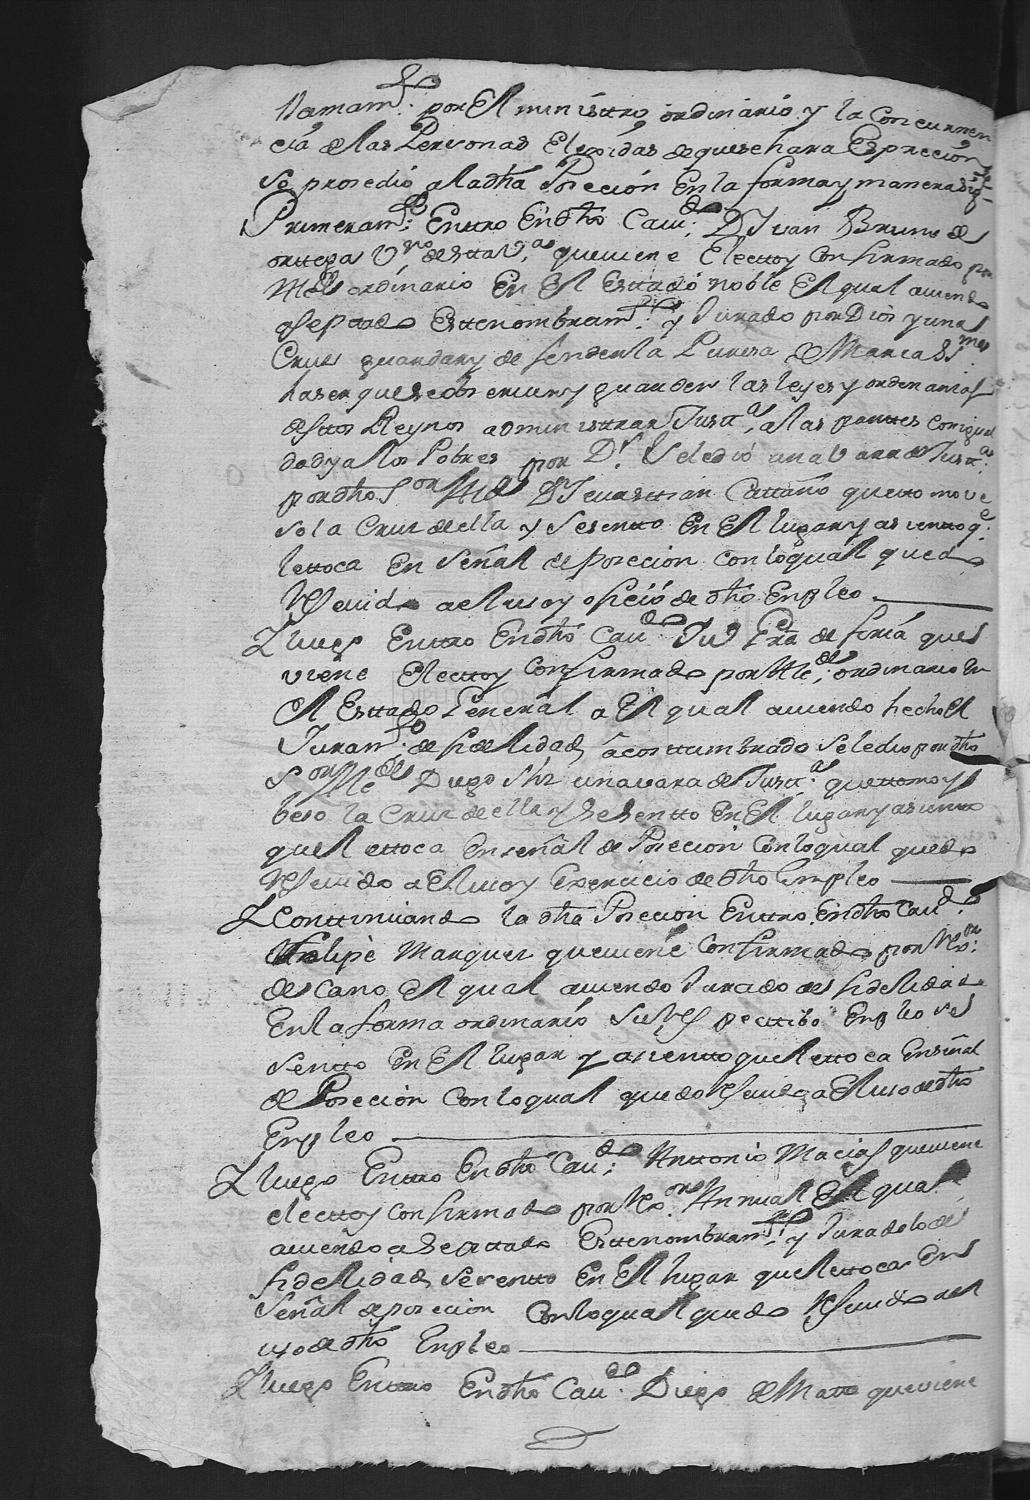 llamam.to por El ministtro ordinario y la Concurren
cia de las Personas Elexidas de que se hara Esprecion
se prosedio a la dha Posecion En la forma y manera sig.te
Primeram.te Enttro En dho Cav.do Dn Juan Bruno de
orttega V.no de estta V.a que viene Electto y Confirmado por
Alc.de ordinario En El Esttado noble El qual aviendo
aseptado Estte nombram.to y Jurado por Dios y una
Cruz guardar y defender la Puresa de Maria SS.ma
haser que se observen y guarden las leyes y ordenanzas
destos Reynos administtrar Justt.a a las parttes con igual
dad y a los Pobres por D.s se le dio una Vara de Justt.a
por dho S.or Alc.de Dn Sevasttian Cattaño que ttomo ve
so la Cruz de ella y se sentto En El lugar y asientto q.e
le ttoca En Señal de posecion con lo qual quedo
Resevido al uso y ofisio de dho Enpleo
Y luego Enttro En dho Cav.do Ju.o Gra de soria que
viene Electto y Confirmado por Alc.de ordinario En
El Esttado General a El qual aviendo hecho El
Juram.to de fidelidad acosttumbrado se le dio por dho
S.or Alc.de Diego Shz una vara de Justt.a que ttomo y
beso la Cruz de ella y se sentto En El lugar y asientto
que le ttoca En señal de Posecion Con lo qual quedo
Resevido a El uso y Exercicio de dho Empleo
Y Conttinuando la dha Posecion Enttro En dho Cav.do
Felipe Marquez que viene Confirmado por
de Cano El qual aviendo Jurado de fidelidad
En la forma ordinario su Respecttibo Enpleo se
sentto En El lugar y asientto que le ttoca En señal
de Posecion Con lo qual quedo Resevido a El uso de dho
Enpleo
Y luego Enttro En dho Cav.do Anttonio Macias que viene
electto y confirmado por Annual El qual
aviendo aseptado Estte nombram.to y Jurado lo de
fidelidad se sentto En El lugar que le ttoca En
Señal de posecion Con lo qual quedo Resevido al
uso de dho Enpleo
Y luego Enttro En dho Cav.do Diego de Matta que viene